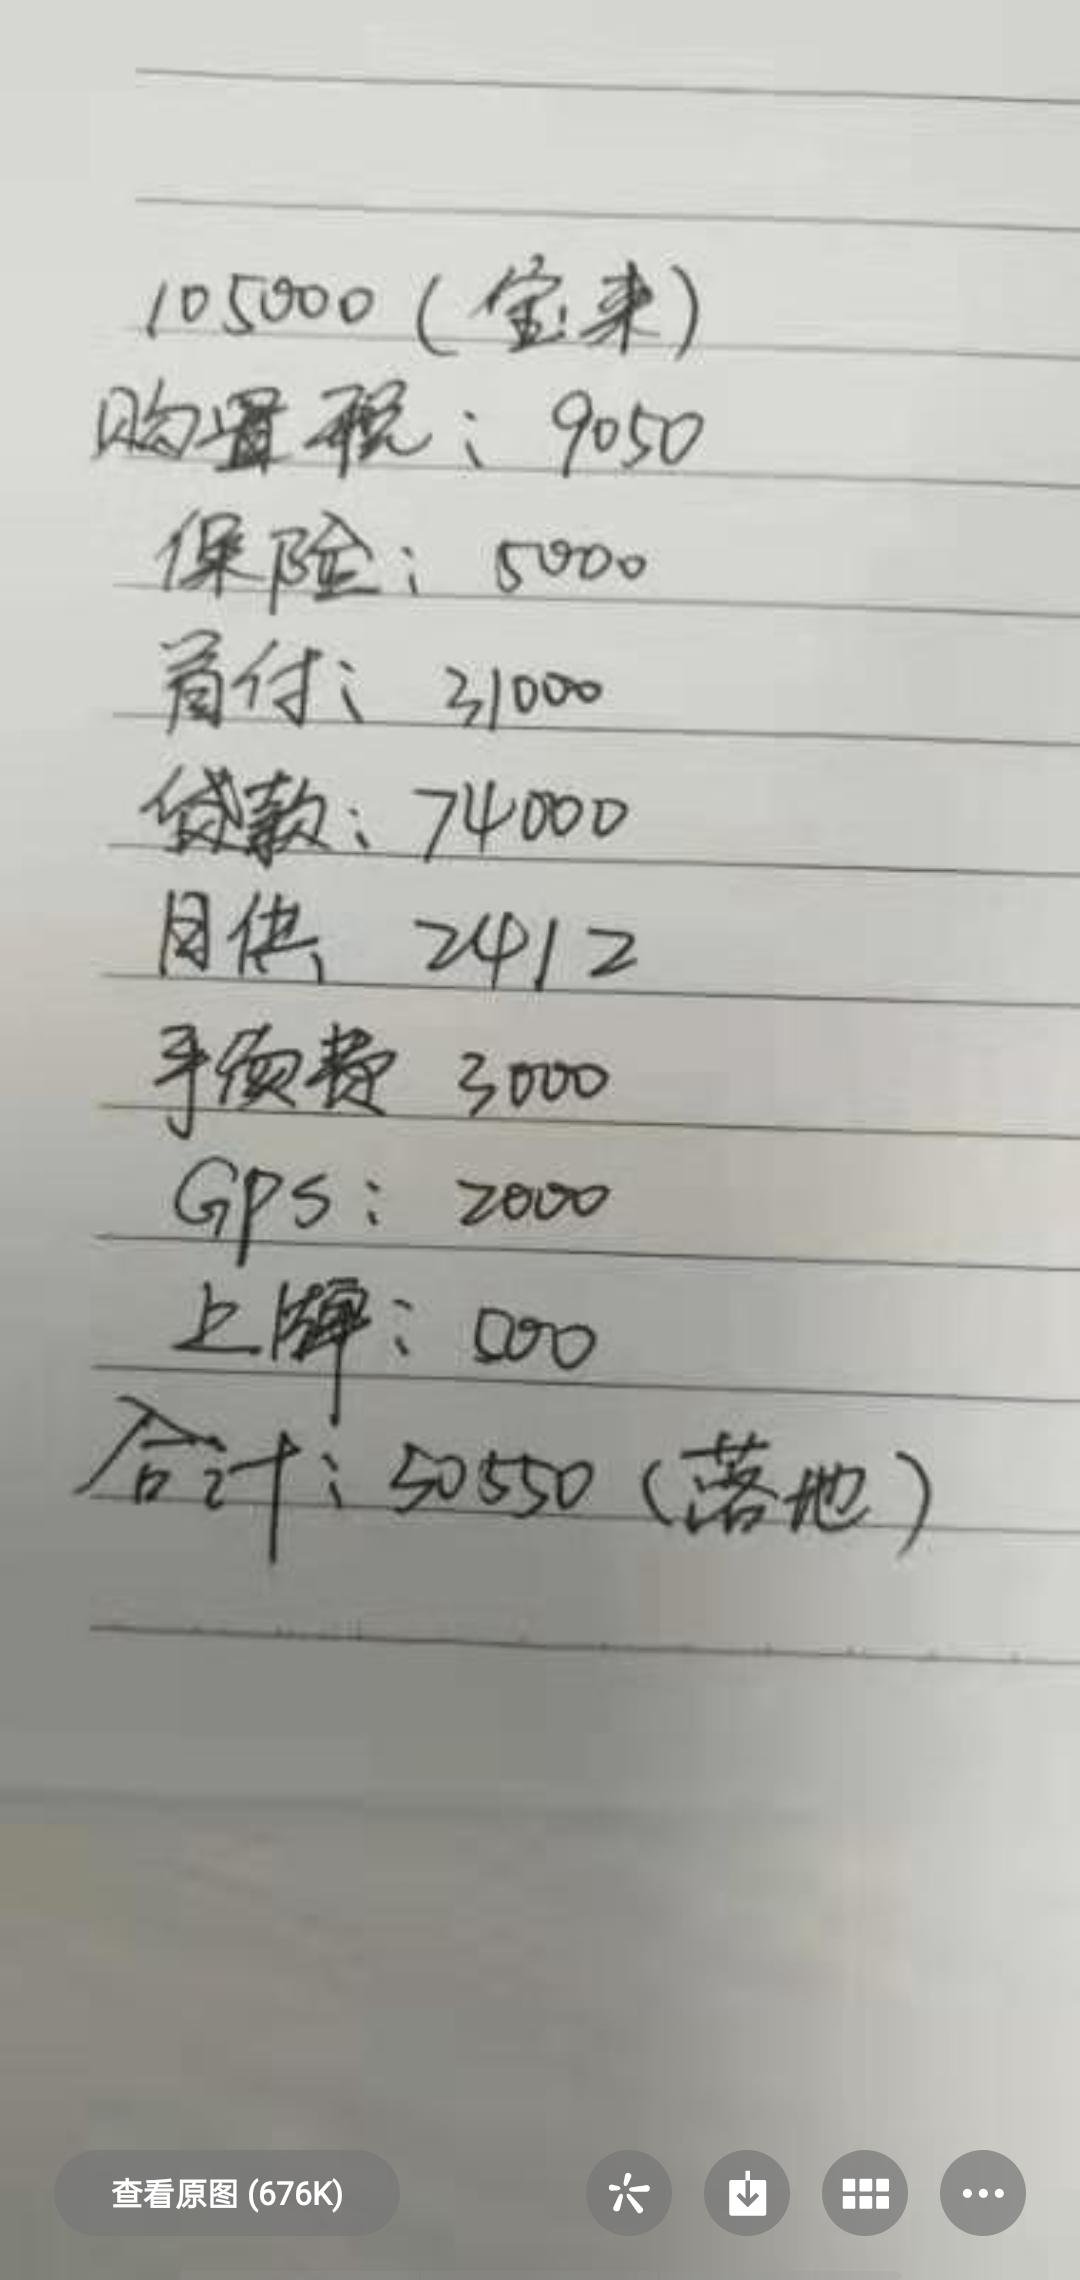 105000（宝来）
购置税：9050
保险：5000
首付：31000
贷款：74000
月供 2412
手续费 3000
GPS：2000
上牌：500
合计：50550（落地）
查看原图 (676K)